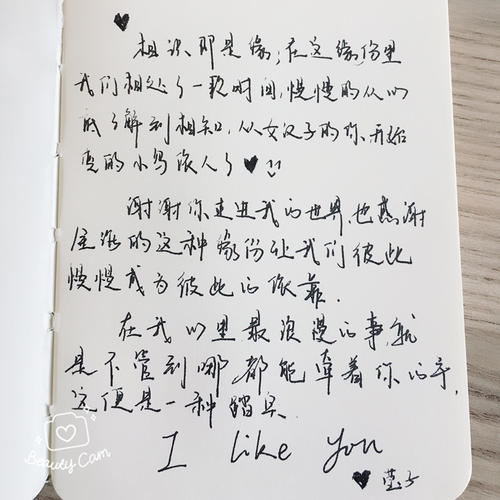 相识即是缘;在这缘份里
我们相处了一段时间,慢慢的从心
底了解到相知,从女汉子的你开始
变的小鸟依人了
谢谢你走进我的世界,也感谢
座的这种缘份让我们彼此
慢慢成为彼此的依靠.
在我心里最浪漫的事,就
是不管到哪都能牵着你的手,
这便是一种踏实
I like you
Beauty Cam